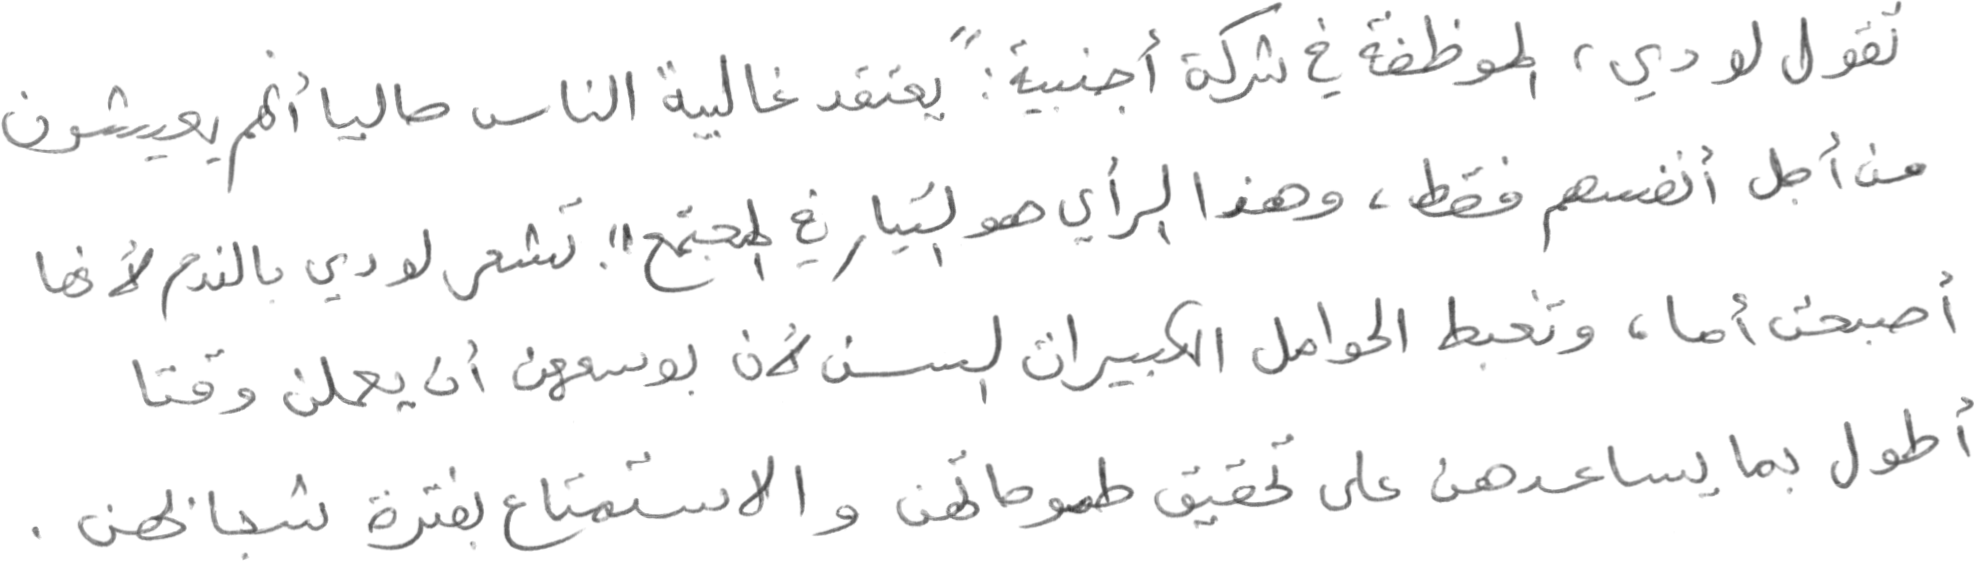 تقول لودي، الموظفة في شركة أجنبية: "يعتقد غالبية الناس حاليا أنهم يعيشون
من أجل أنفسهم فقط، وهذا الرأي هو التيار في المجتمع". تشعر لودي بالندم لأنها
أصبحت أما، وتغبط الحوامل الكبيرات السن لأن بوسعهن أن يعملن وقتا
أطول بما يساعدهن على تحقيق طموحاتهن والاستمتاع بفترة شبابهن.